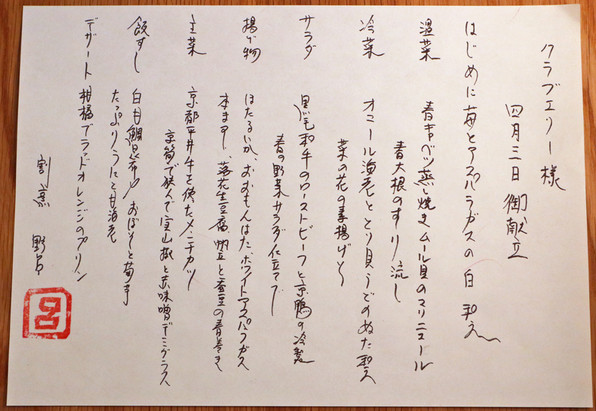 クラブエリー様
四月三日 御献立
はじめに 苺とアスパラガスの白和え
温菜 春キャベツ蒸し焼き ムール貝のマリニエール
青大根のすり流し
冷菜 オニール海老ととり貝うどのぬた和え
菜の花の素揚げと
サラダ 黒毛和牛のローストビーフと京鴨の冷製
春の野菜サラダ仕立て
揚げ物 ほたるいか、おおもんはた、ホワイトアスパラガス
本ます、落花生豆腐 帆立と蚕豆の春巻き
主菜 京都平井牛を使たメンチカツ
京筍で挟んで 実山椒と赤味噌デミグラス
飯すし 白甘鯛昆布〆 おぼろと木の芽
たっぷりうにと甘海老
デザート 柑橘ブラッドオレンジのプリン
割烹 野呂
呂